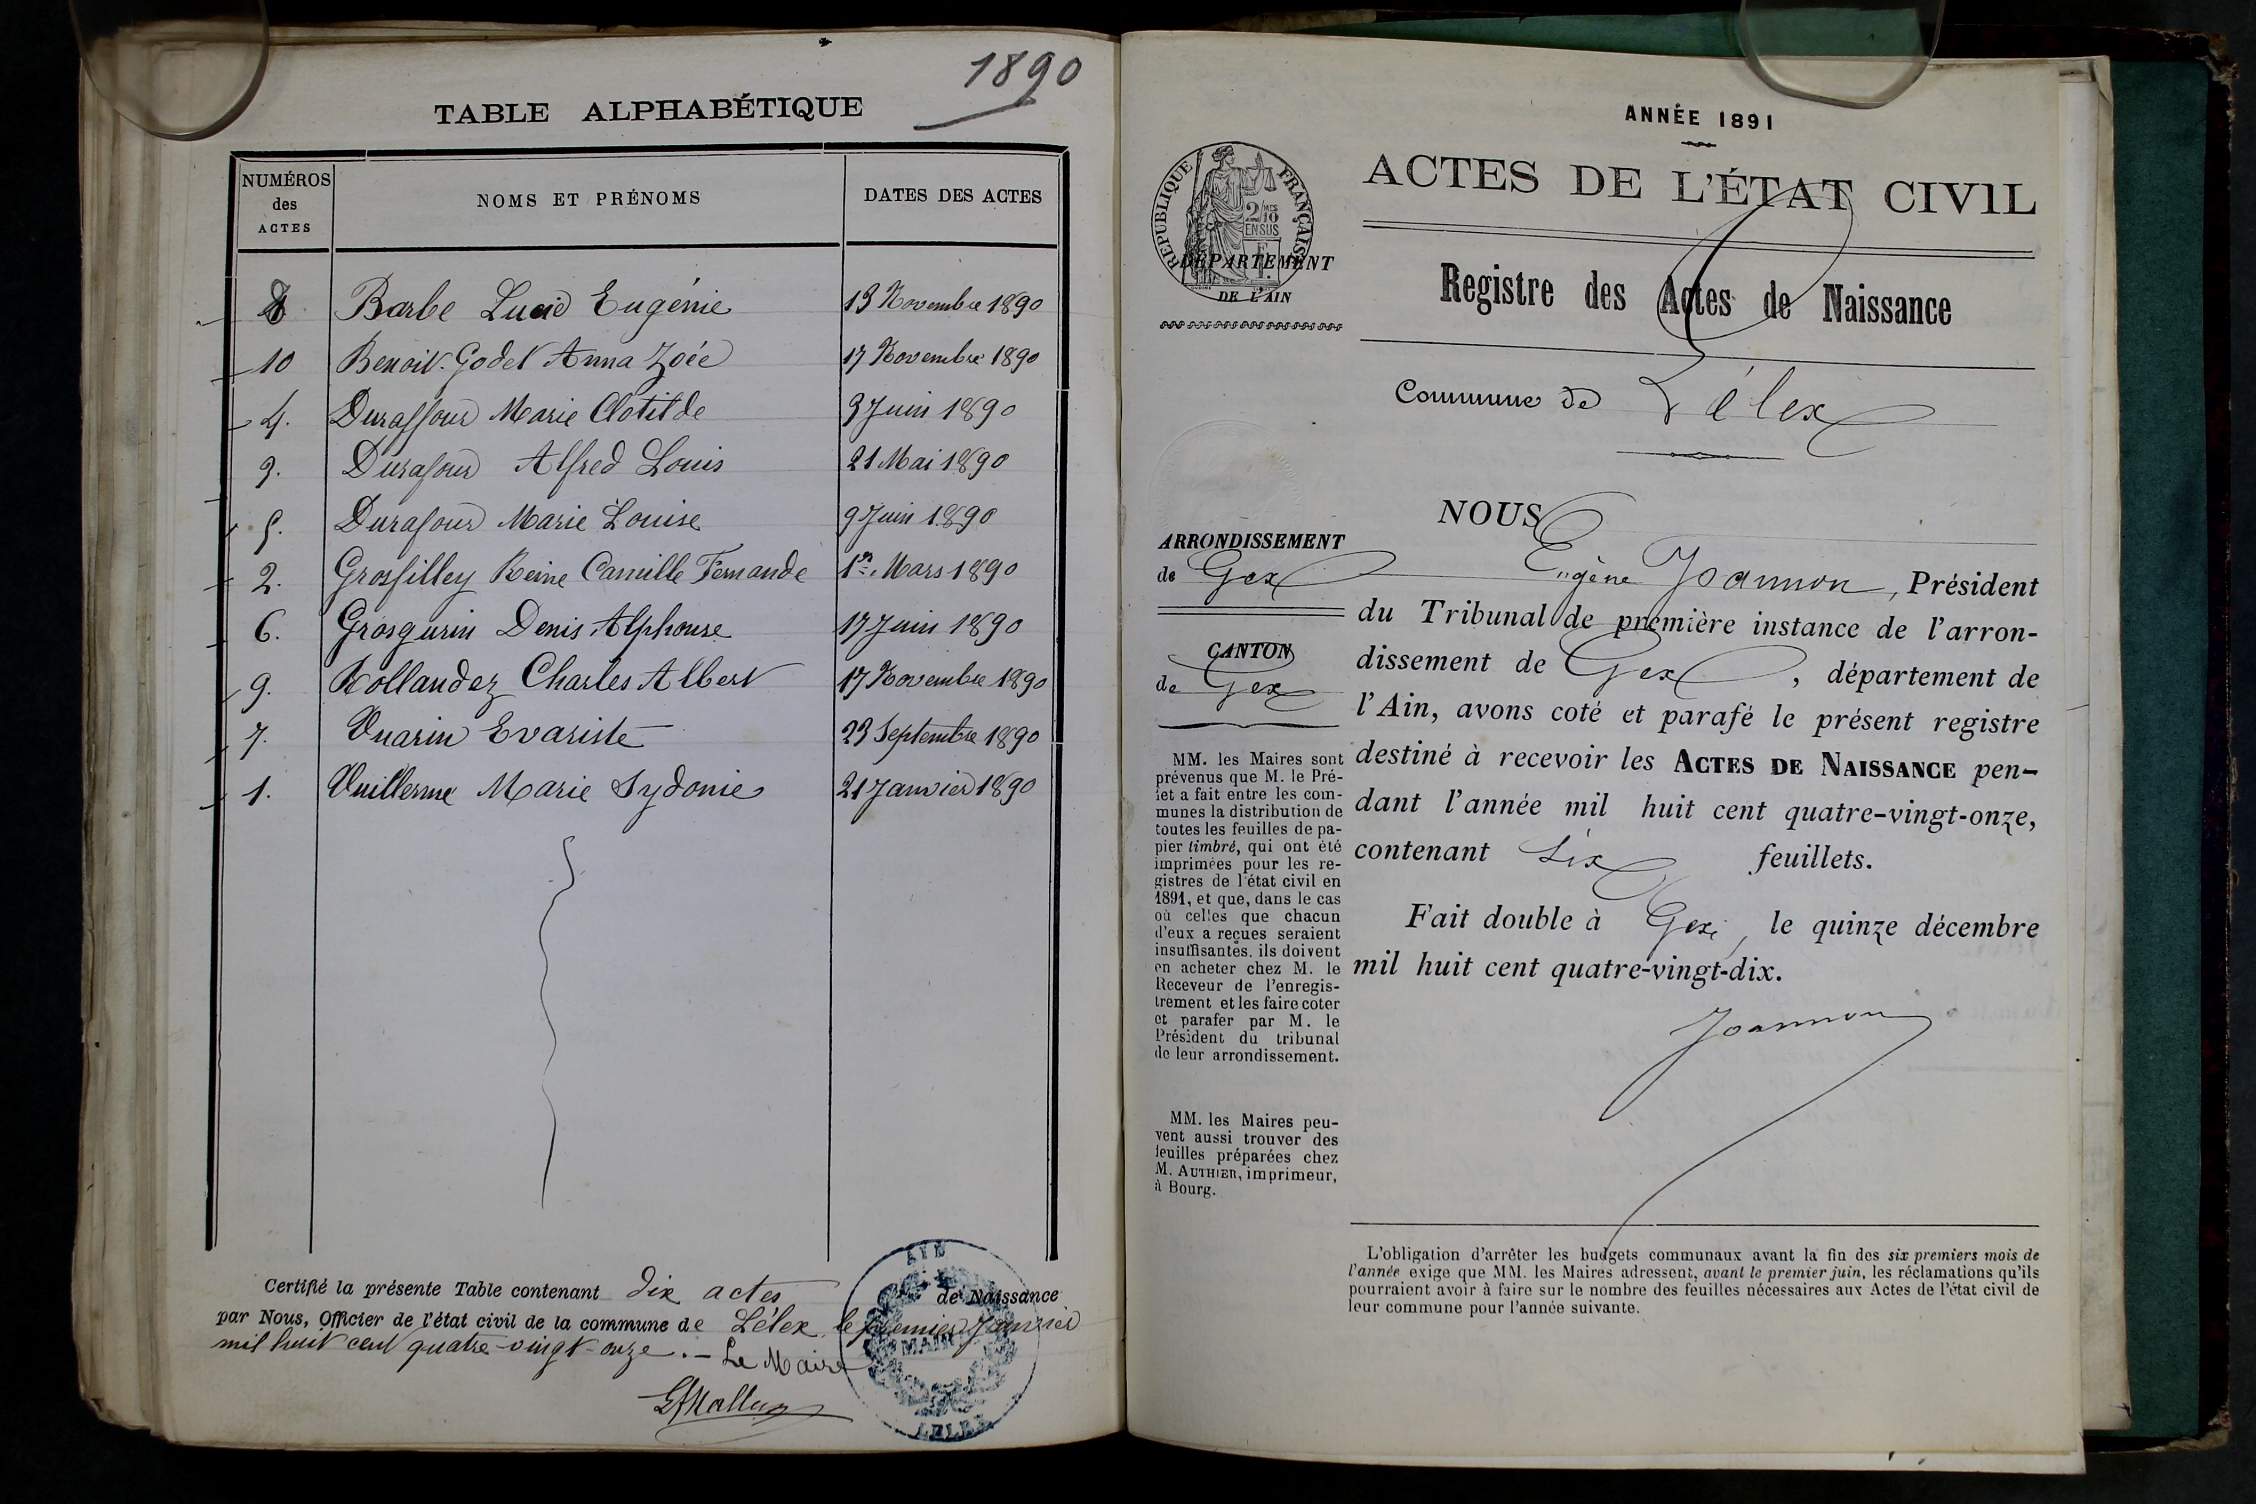 1890
TABLE ALPHABÉTIQUE
NUMÉROS des ACTES | NOMS ET PRÉNOMS | DATES DES ACTES
8 Barbe Lucie Eugénie 13 Novembre 1890
10 Benoit-Godet Anna Zoée 17 Novembre 1890
4. Duraffour Marie Clotilde 3 Juin 1890
3. Durafour Alfred Louis 21 Mai 1890
5. Durafour Marie Louise 9 Juin 1890
2. Grosfilley Reine Camille Fernande 1er Mars 1890
6. Grosgurin Denis Alphonse 17 Juin 1890
9. Rollandez Charles Albert 17 Novembre 1890
7. Vuarin Evariste 23 Septembre 1890
1. Vuillerme Marie Sydonie 21 Janvier 1890
Certifié la présente Table contenant dix actes de Naissance
par Nous, Officier de l'état civil de la commune de Lélex, le premier Janvier
mil huit cent quatre-vingt-onze. – Le Maire
MAIRIE
LELEX
ANNÉE 1891
ACTES DE L'ÉTAT CIVIL
RÉPUBLIQUE FRANÇAISE
2/10
EN SUS
DÉPARTEMENT
DE L'AIN
Registre des Actes de Naissance
Commune de Lélex
ARRONDISSEMENT
de Gex
CANTON
de Gex
MM. les Maires sont
prévenus que M. le Pré-
fet a fait entre les com-
munes la distribution de
toutes les feuilles de pa-
pier timbré, qui ont été
imprimées pour les re-
gistres de l'état civil en
1891, et que, dans le cas
où celles que chacun
d'eux a reçues seraient
insuffisantes, ils doivent
en acheter chez M. le
Receveur de l'enregis-
trement et les faire coter
et parafer par M. le
Président du tribunal
de leur arrondissement.
MM. les Maires peu-
vent aussi trouver des
feuilles préparées chez
M. AUTHIER, imprimeur,
à Bourg.
NOUS
Eugène Joannon, Président
du Tribunal de première instance de l'arron-
dissement de Gex, département de
l'Ain, avons coté et parafé le présent registre
destiné à recevoir les ACTES DE NAISSANCE pen-
dant l'année mil huit cent quatre-vingt-onze,
contenant six feuillets.
Fait double à Gex, le quinze décembre
mil huit cent quatre-vingt-dix.
Joannon
L'obligation d'arrêter les budgets communaux avant la fin des six premiers mois de
l'année exige que MM. les Maires adressent, avant le premier juin, les réclamations qu'ils
pourraient avoir à faire sur le nombre des feuilles nécessaires aux Actes de l'état civil de
leur commune pour l'année suivante.